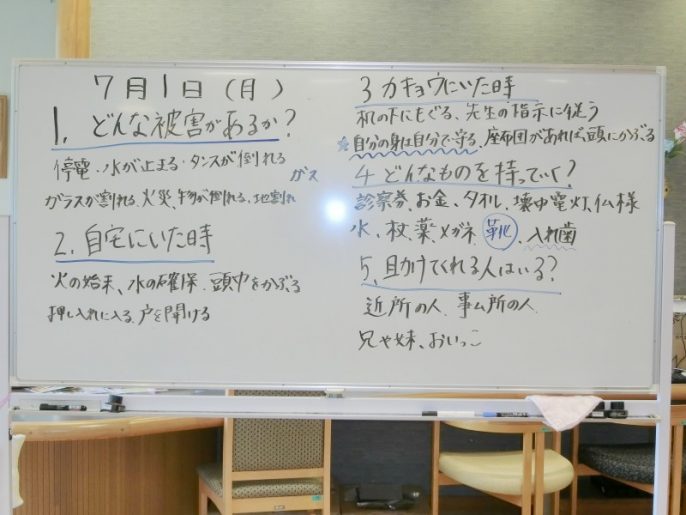 7月1日(月)
1. どんな被害があるか?
停電・水が止まる・タンスが倒れる
ガス
ガラスが割れる、火災、物が倒れる、地割れ
2. 自宅にいた時
火の始末、水の確保、頭巾をかぶる
押し入れに入る、戸を開ける
3 カキョウにいた時
机の下にもぐる、先生の指示に従う
☆自分の身は自分で守る、座布団があれば、頭にかぶる
4 どんなものを持っていく?
診察券、お金、タオル、懐中電灯、仏様
水、杖、薬、メガネ、靴、入れ歯
5、助けてくれる人はいる?
近所の人、事ム所の人
兄や妹、おいっこ